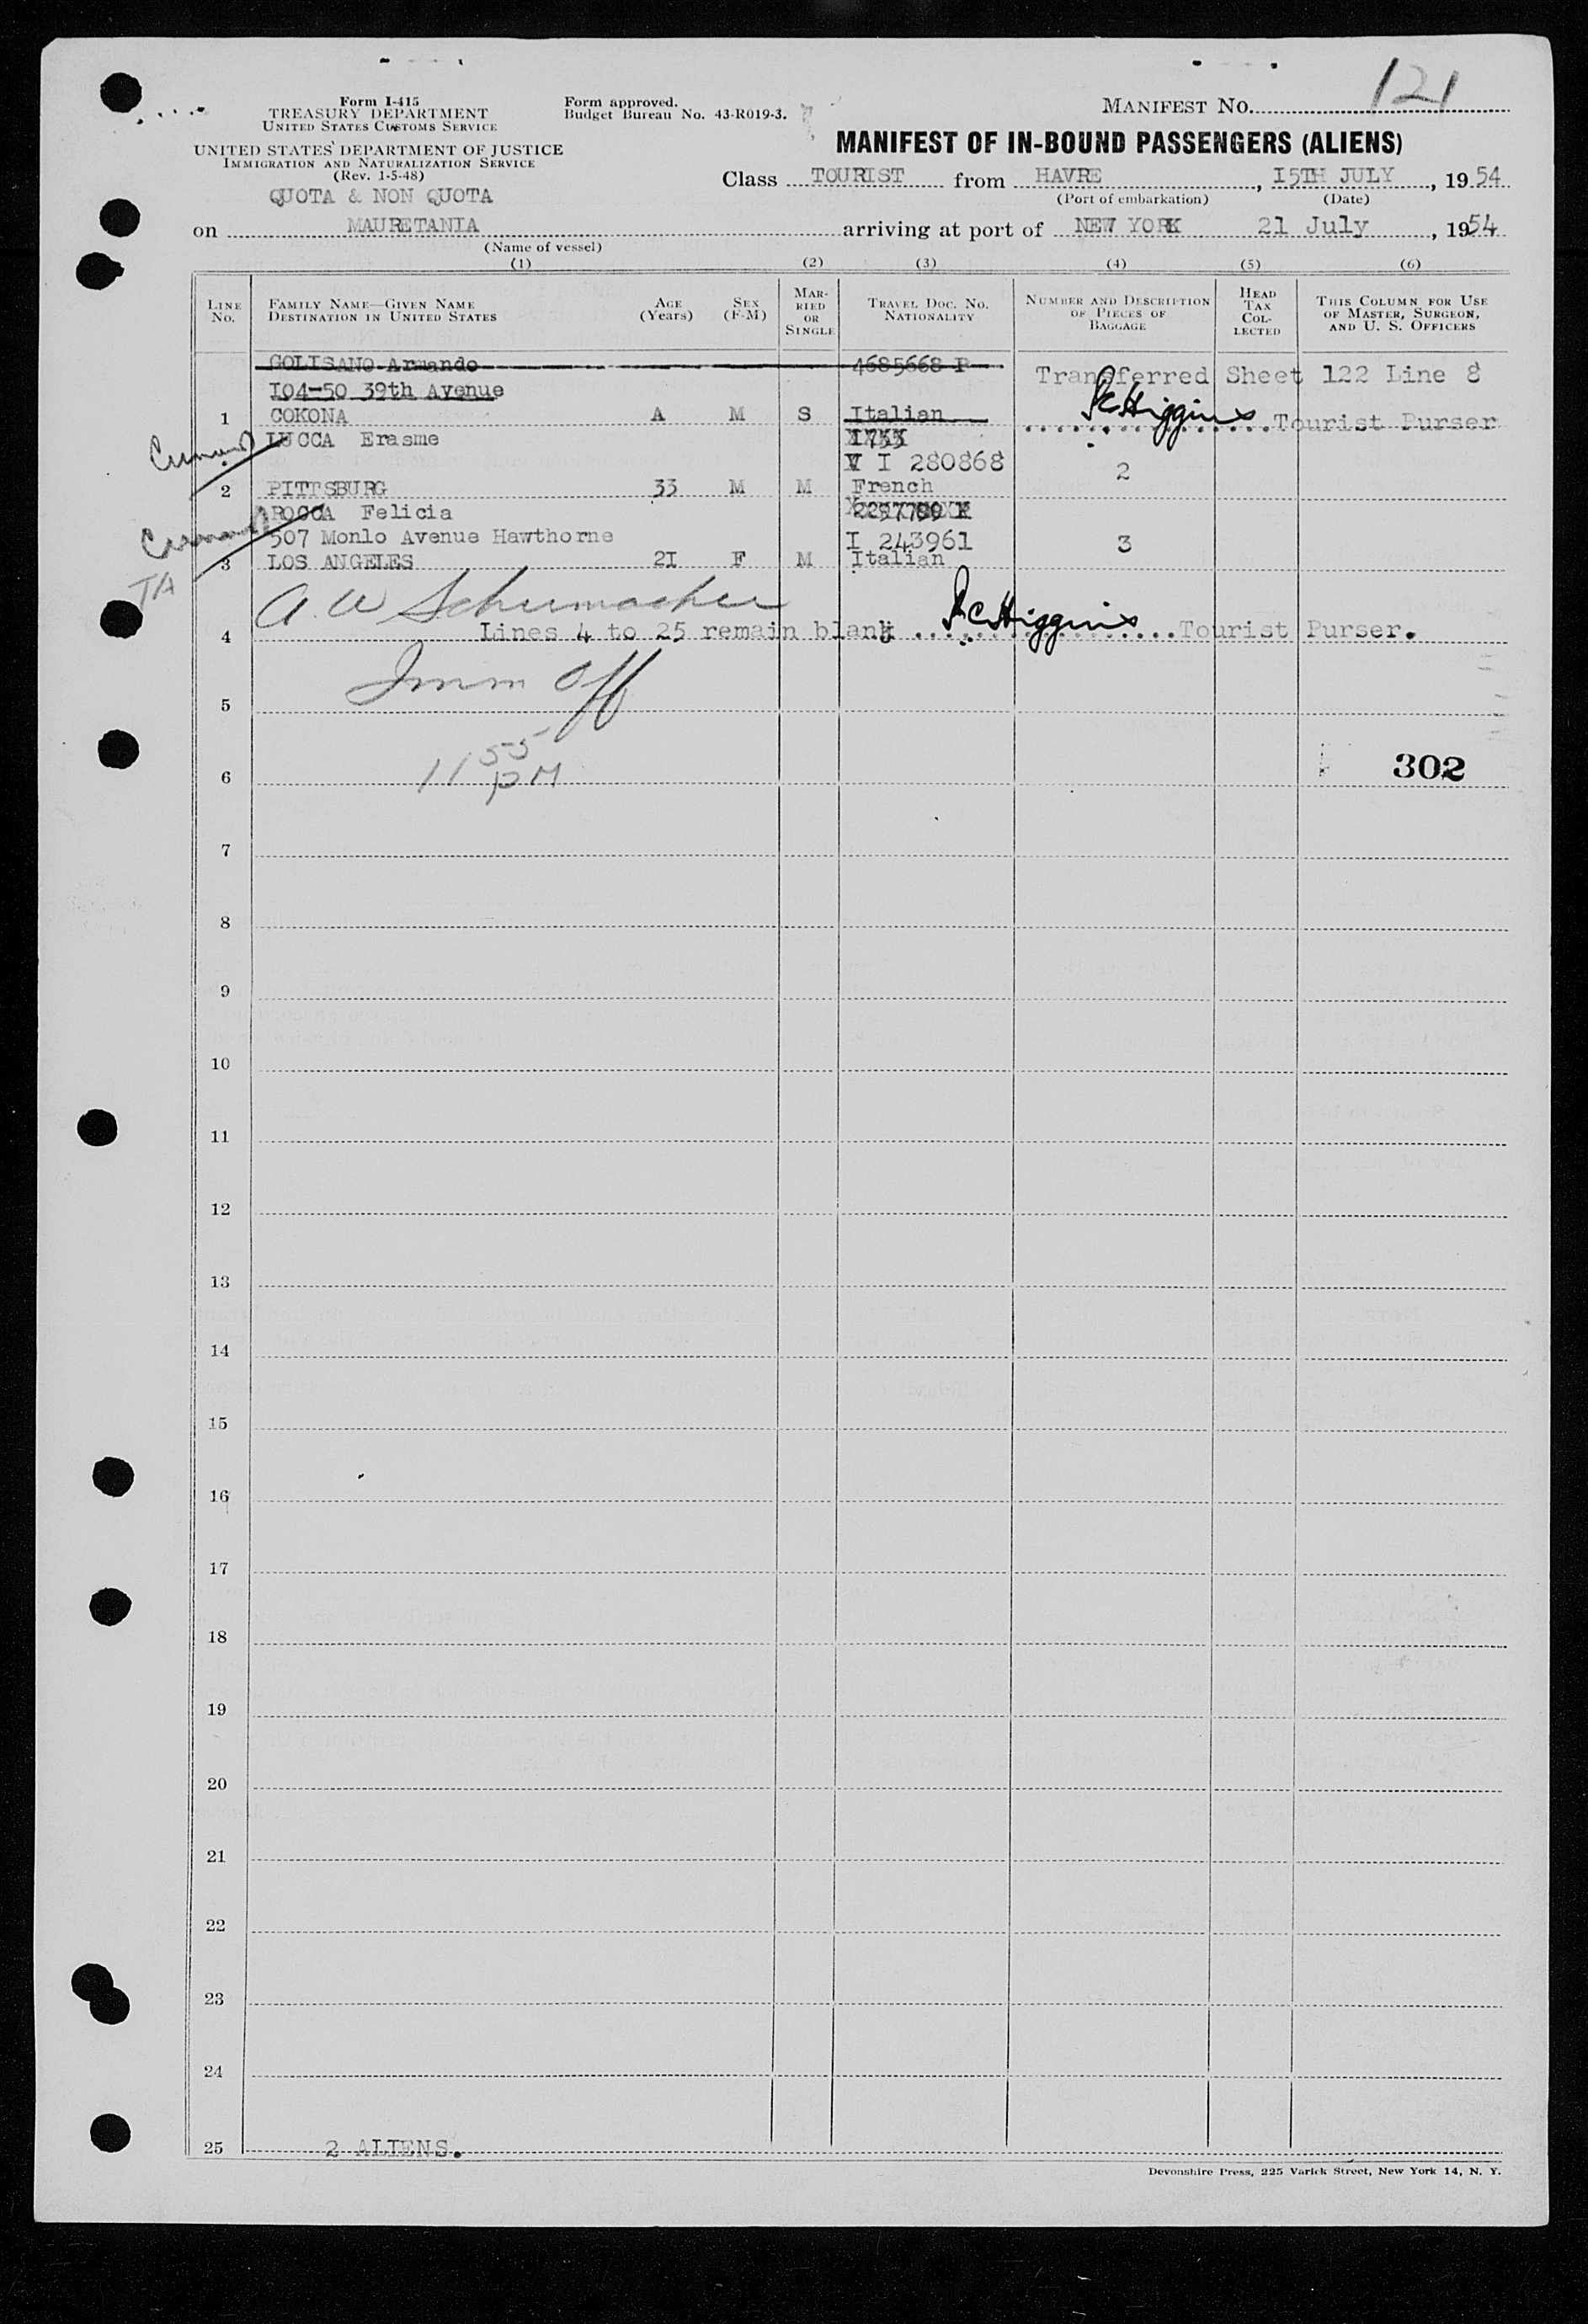 121
Form I-415
TREASURY DEPARTMENT
UNITED STATES CUSTOMS SERVICE
Form approved.
Budget Bureau No. 43-R019-3.
MANIFEST NO.
UNITED STATES DEPARTMENT OF JUSTICE
IMMIGRATION AND NATURALIZATION SERVICE
(Rev. 1-5-48)
MANIFEST OF IN-BOUND PASSENGERS (ALIENS)
QUOTA & NON QUOTA
Class TOURIST from HAVRE, I5TH JULY, 1954
(Port of embarkation) (Date)
on MAURETANIA arriving at port of NEW YORK 21 July, 1954
(Name of vessel)
(1) (2) (3) (4) (5) (6)
LINE No. FAMILY NAME—GIVEN NAME DESTINATION IN UNITED STATES AGE (Years) SEX (F-M) MARRIED OR SINGLE TRAVEL DOC. NO. NATIONALITY NUMBER AND DESCRIPTION OF PIECES OF BAGGAGE HEAD TAX COLLECTED THIS COLUMN FOR USE OF MASTER, SURGEON, AND U. S. OFFICERS
GOLISANO Armando 4685668 P
Transferred Sheet 122 Line 8
I04-50 39th Avenue
1 COKONA A M S Italian Higgins Tourist Purser
LUCCA Erasme
V I 280868 2
2 PITTSBURG 33 M M French
ROCCA Felicia
507 Monlo Avenue Hawthorne I 243961 3
3 LOS ANGELES 2I F M Italian
TA
A. W Schumacher
4 Lines 4 to 25 remain blank Higgins Tourist Purser.
Imm Off
5
11 55 PM
6 302
7
8
9
10
11
12
13
14
15
16
17
18
19
20
21
22
23
24
25 2 ALIENS.
Devonshire Press, 225 Varick Street, New York 14, N. Y.